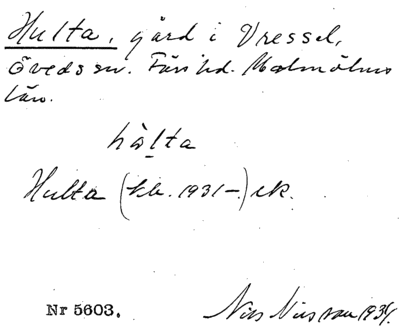 Hulta, gård i Vressel,
Öveds sn. Färs hd. Malmöhus
län.
hålta
Hulta (kb. 1931-) ek.
Nr 5603. Nils Nilsson 1934.